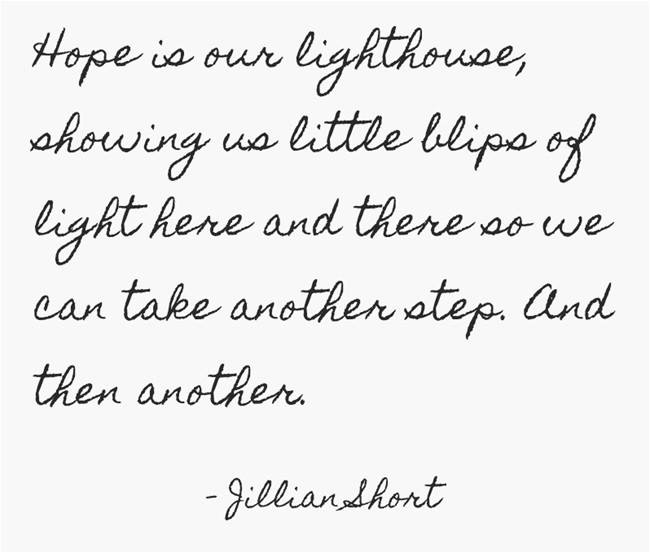 Hope is our lighthouse,
showing us little blips of
light here and there so we
can take another step. And
then another.
- Jillian Short